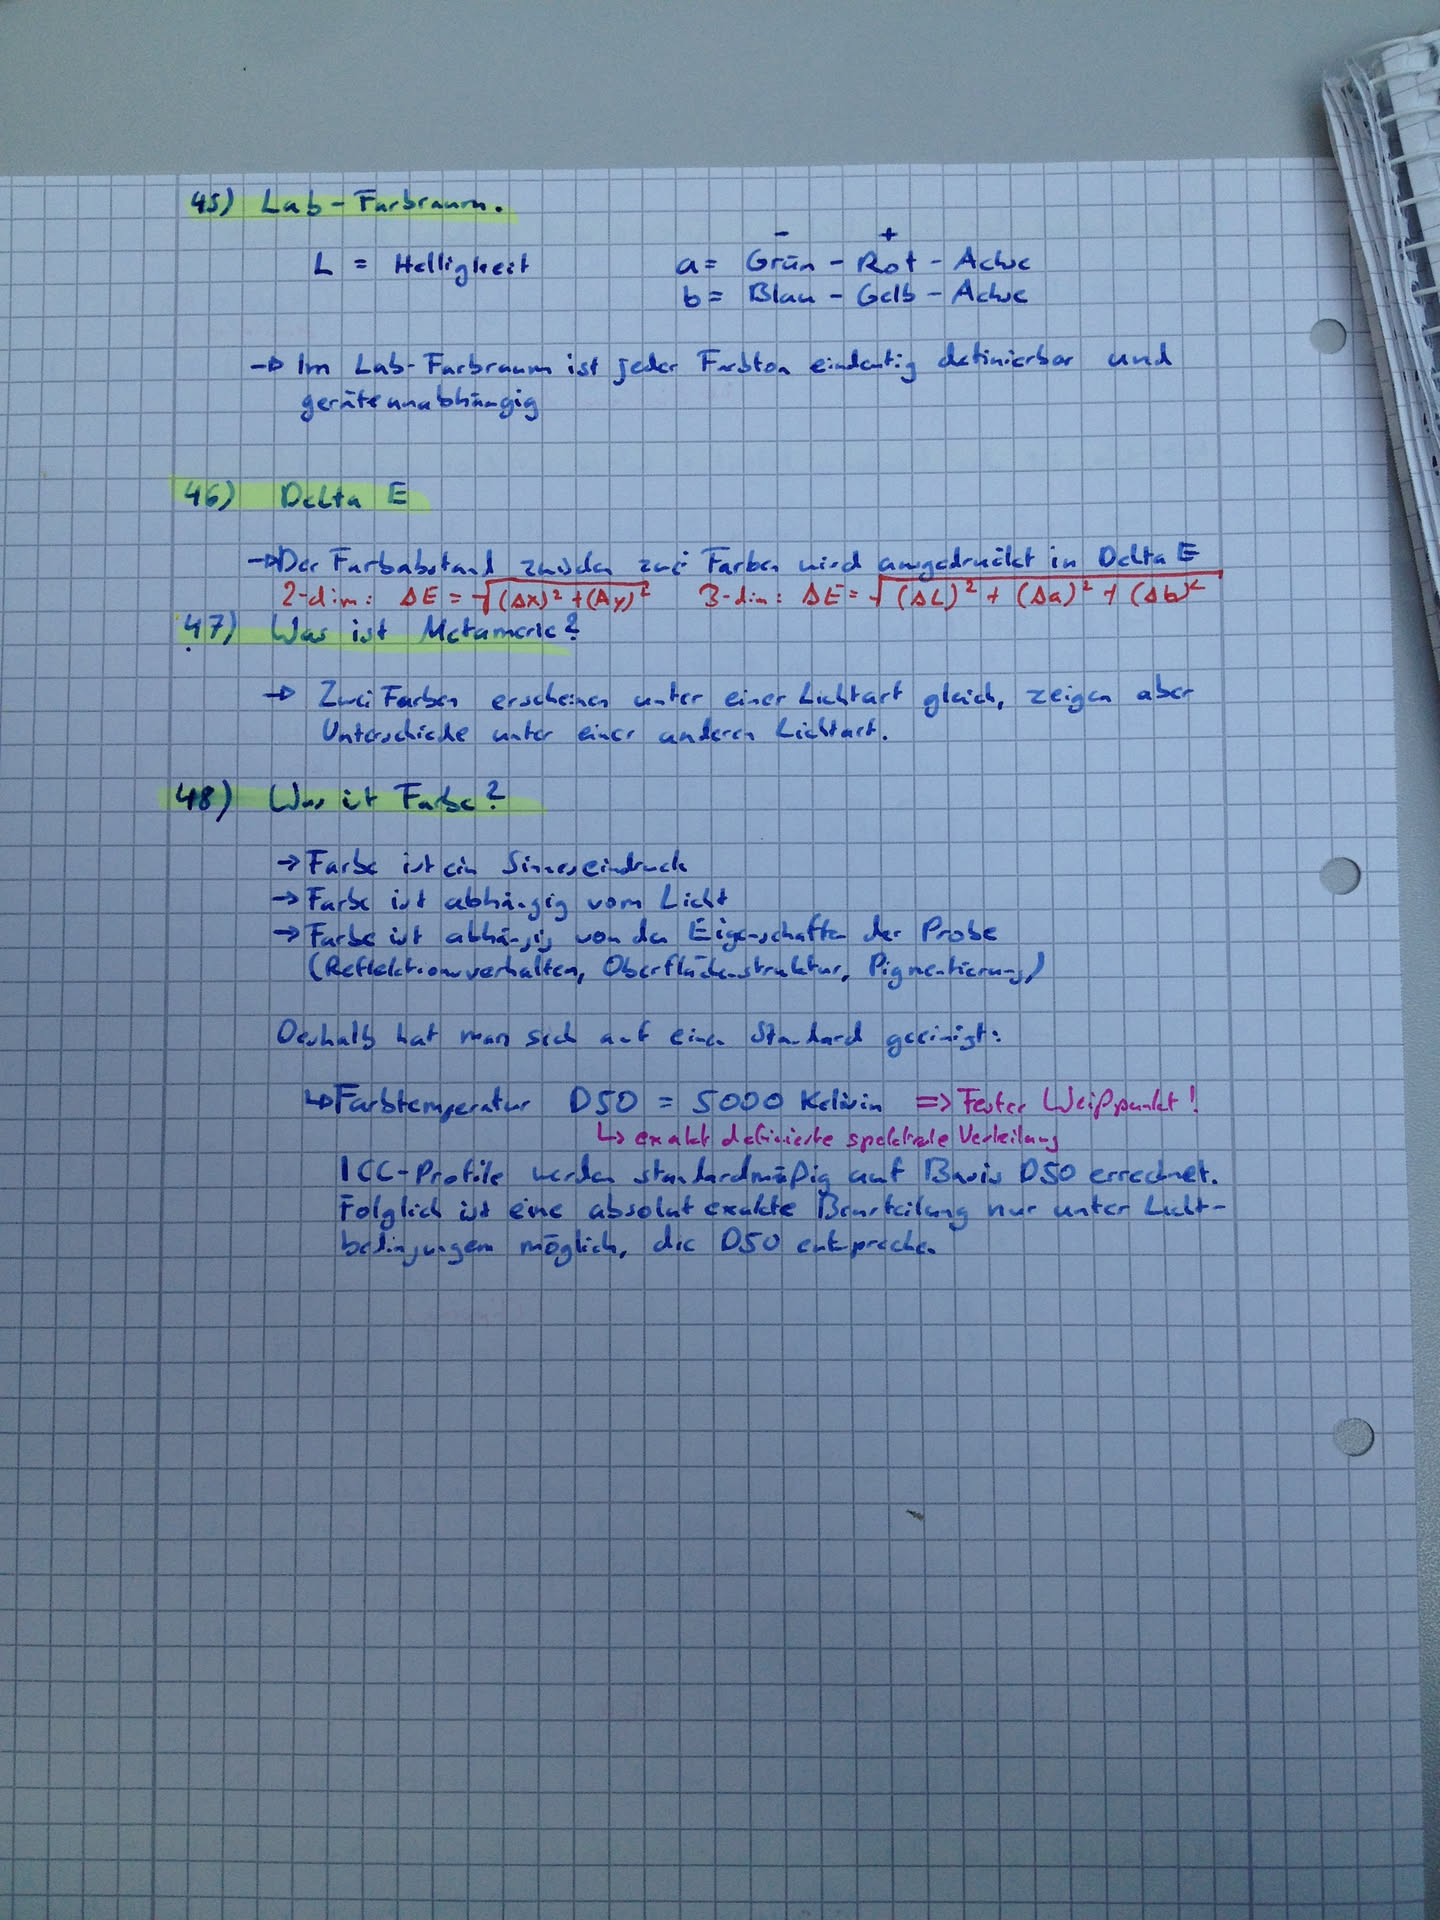 45) Lab-Farbraum.
- +
L = Helligkeit a = Grün - Rot - Achse
b = Blau - Gelb - Achse
→ Im Lab-Farbraum ist jeder Farbton eindeutig definierbar und
geräteunabhängig
46) Delta E
→ Der Farbabstand zwischen zwei Farben wird ausgedrückt in Delta E
2-dim: ΔE = √(Δx)² + (Δy)² 3-dim: ΔE = √(ΔL)² + (Δa)² + (Δb)²
47) Was ist Metamerie?
→ Zwei Farben erscheinen unter einer Lichtart gleich, zeigen aber
Unterschiede unter einer anderen Lichtart.
48) Was ist Farbe?
→ Farbe ist ein Sinneseindruck
→ Farbe ist abhängig vom Licht
→ Farbe ist abhängig von den Eigenschaften der Probe
(Reflektionsverhalten, Oberflächenstruktur, Pigmentierung)
Deshalb hat man sich auf einen Standard geeinigt:
↳ Farbtemperatur D50 = 5000 Kelvin => Fester Weißpunkt!
↳ exakt definierte spektrale Verteilung
ICC-Profile werden standardmäßig auf Basis D50 errechnet.
Folglich ist eine absolut exakte Beurteilung nur unter Licht-
bedingungen möglich, die D50 entsprechen.